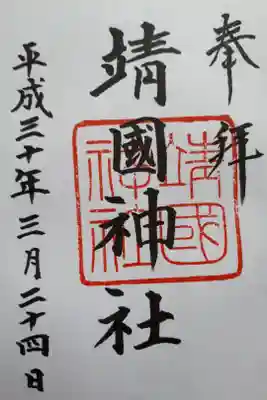 奉拝
靖國神社
平成三十年三月二十四日
靖國
神社